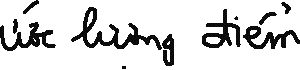 ước lượng điểm